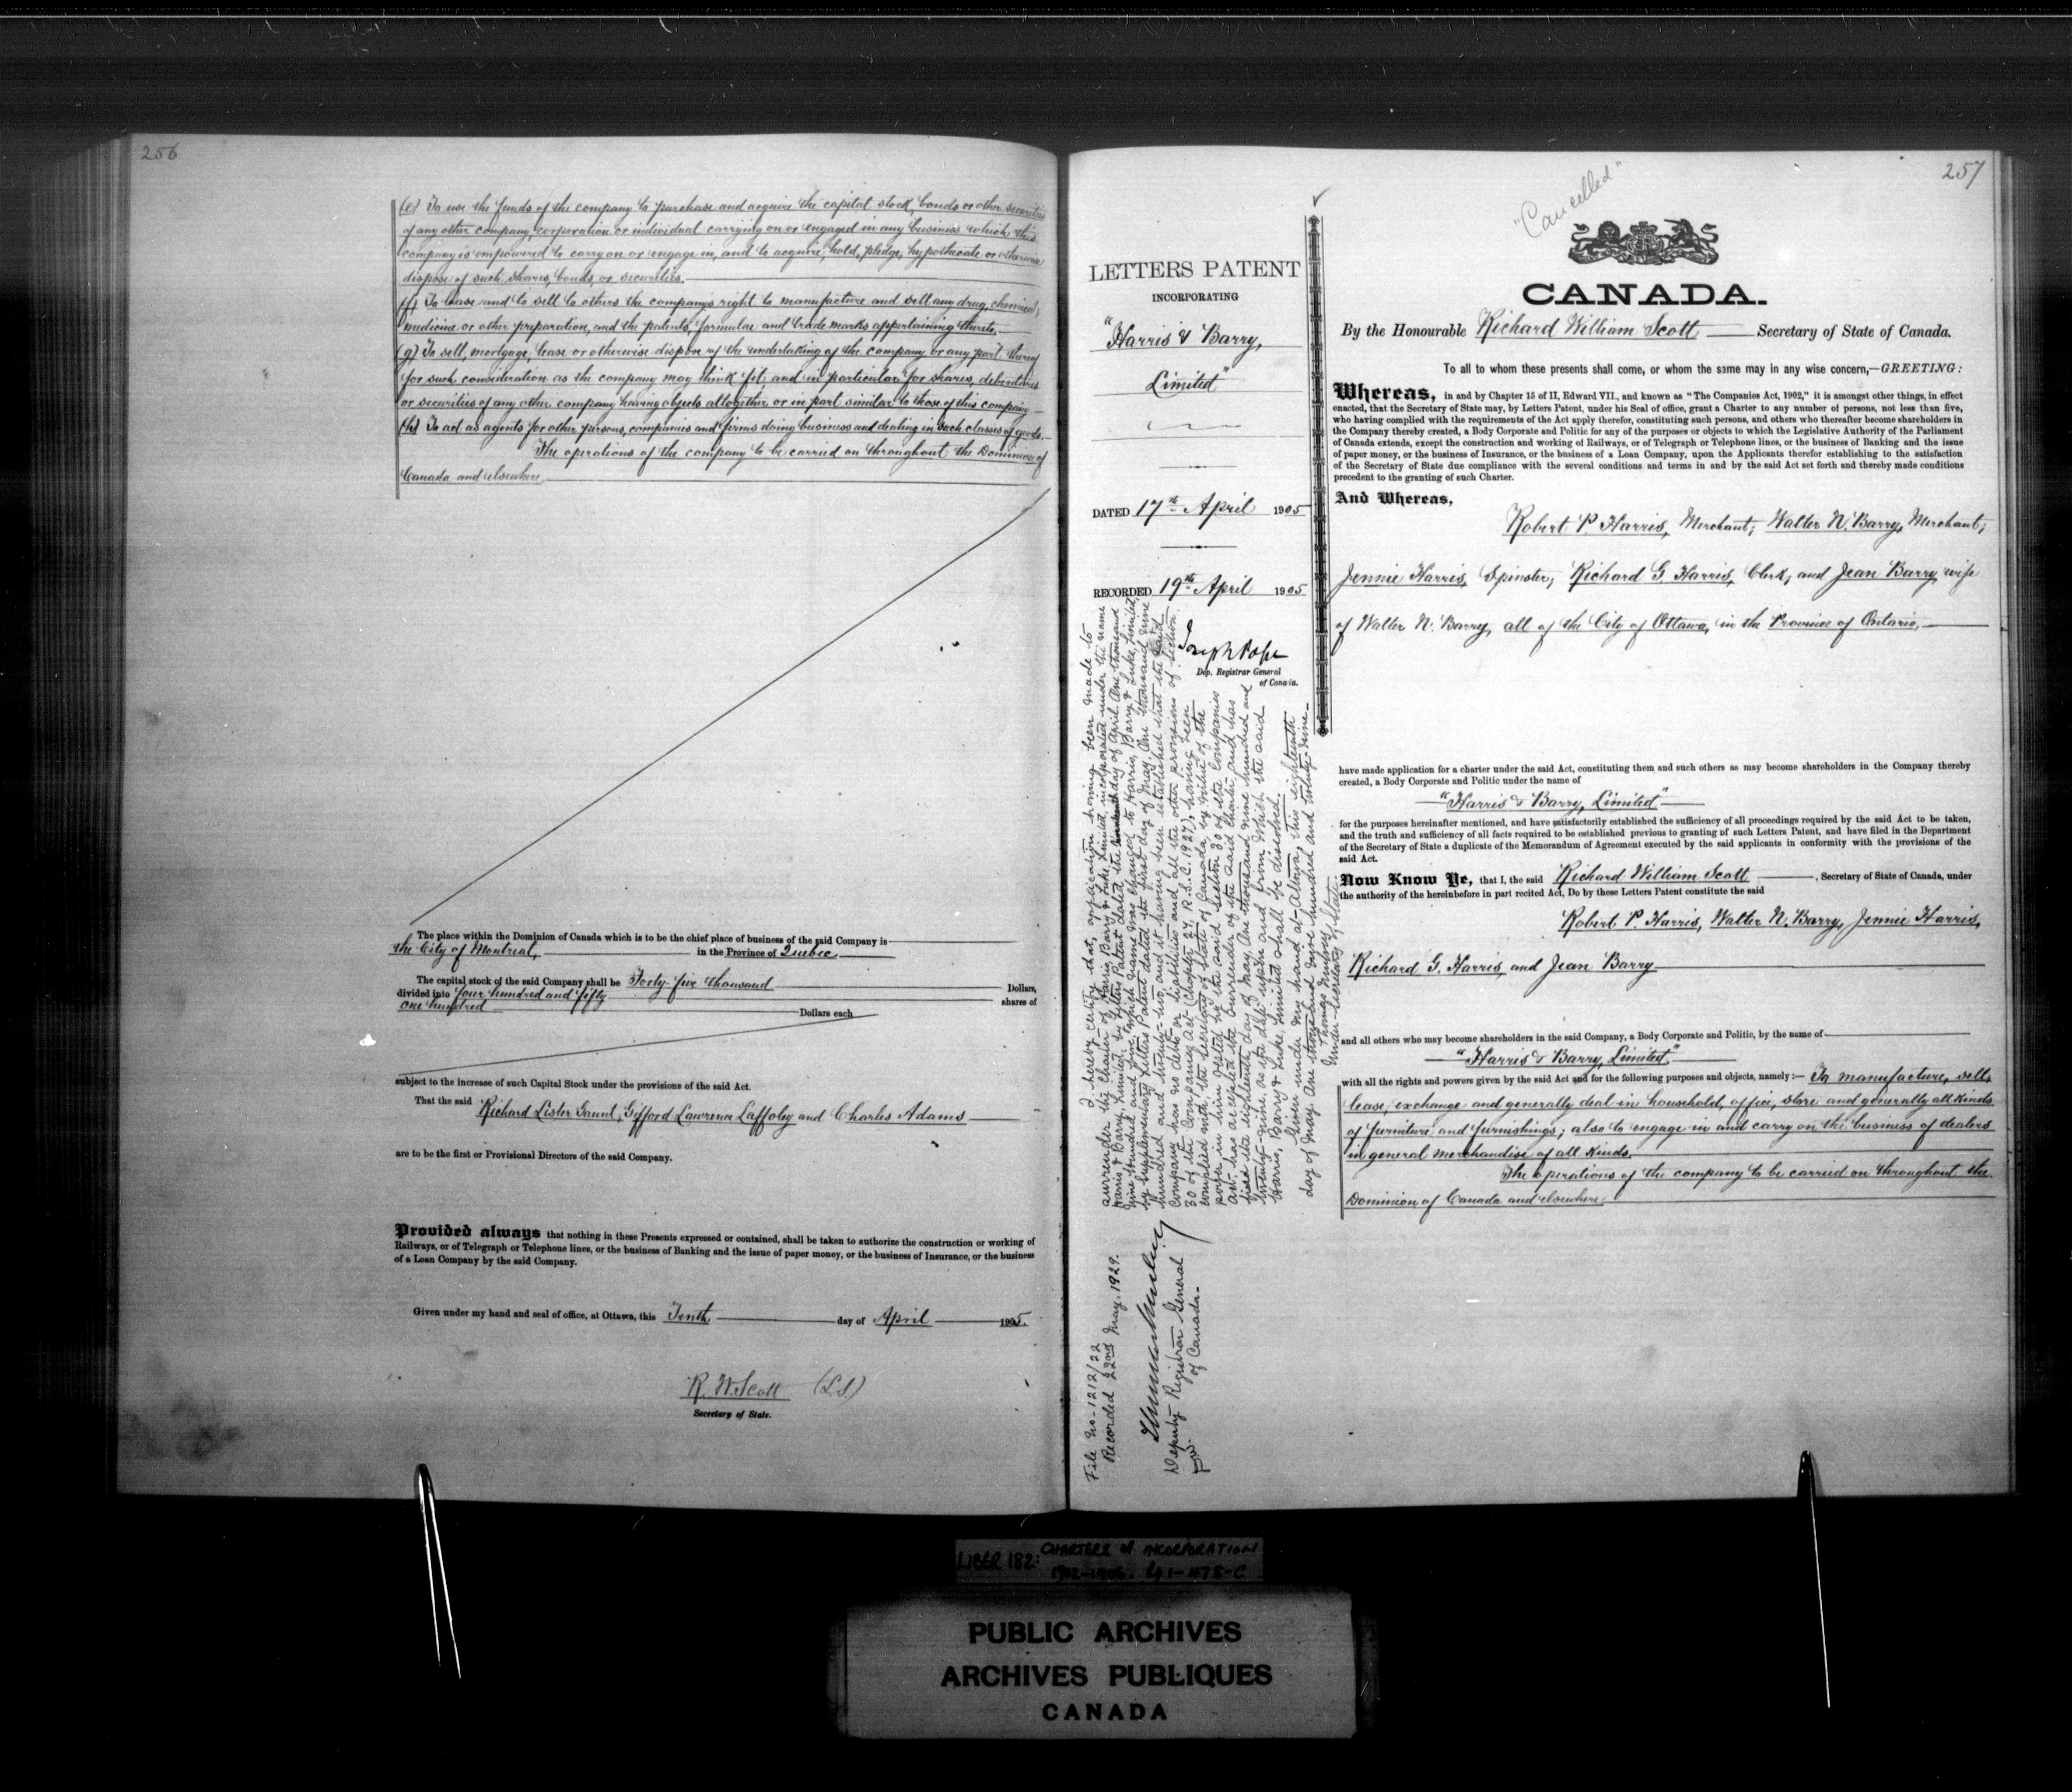 256
(e) To use the funds of the company to purchase and acquire the capital stock, bonds or other securities
of any other company, corporation or individual carrying on or engaged in any business which this
company is empowered to carry on or engage in, and to acquire, hold, pledge, hypothecate or otherwise
dispose of such shares, bonds, or securities.
(f) To lease and to sell to others the company's right to manufacture and sell any drug, chemical,
medicine or other preparation, and the patents, formulae and trade marks appertaining thereto.
(g) To sell, mortgage, lease or otherwise dispose of the undertaking of the company or any part thereof
for such consideration as the company may think fit, and in particular for shares, debentures
or securities of any other company having objects altogether or in part similar to those of this company
(h) To act as agents for other persons, companies and firms doing business and dealing in such classes of goods.
The operations of the company to be carried on throughout the Dominion of
Canada and elsewhere.
The place within the Dominion of Canada which is to be the chief place of business of the said Company is
the City of Montreal, in the Province of Quebec.
The capital stock of the said Company shall be Forty-five thousand Dollars,
divided into four hundred and fifty shares of
one hundred Dollars each
subject to the increase of such Capital Stock under the provisions of the said Act.
That the said Richard Lister Gaunt, Gifford Lawrence Laffoley and Charles Adams
are to be the first or Provisional Directors of the said Company.
Provided always that nothing in these Presents expressed or contained, shall be taken to authorize the construction or working of
Railways, or of Telegraph or Telephone lines, or the business of Banking and the issue of paper money, or the business of Insurance, or the business
of a Loan Company by the said Company.
Given under my hand and seal of office, at Ottawa, this Tenth day of April 1905.
R. W. Scott (L.S.)
Secretary of State.
257
"Cancelled"
LETTERS PATENT
INCORPORATING
"Harris & Barry,
Limited"
DATED 17th April 1905
RECORDED 19th April 1905
Joseph Pope
Dep. Registrar General
of Canada.
I hereby certify that, application having been made to
surrender the Charter of Harris, Barry & Luke, Limited, incorporated under the name
Harris & Barry, Limited, by Letters Patent dated the day of April, One thousand
nine hundred and five, which name was changed to Harris, Barry & Luke, Limited,
by Supplementary Letters Patent dated the first day of May, One thousand nine
hundred and twenty-two, and it having been established that the said
Company has no debts or liabilities and all the other provisions of section
30 of the Companies Act (Chapter 27, R.S.C. 1927), having been
complied with, the Secretary of State of Canada, by virtue of the
power in him vested by the said section 30 of the Companies
Act, has accepted the surrender of the said Charter, and has
fixed the eighteenth day of May, One thousand nine hundred and
twenty-nine, as the date upon and from which the said
Harris, Barry & Luke, Limited shall be dissolved.
Given under my hand at Ottawa, this eighteenth
day of May, One thousand nine hundred and twenty-nine.
Thomas Mulvey
Under-Secretary of State.
File No-1212/22
Recorded 22nd May, 1929.
Thomas Mulvey
Deputy Registrar General
of Canada.
CANADA.
By the Honourable Richard William Scott Secretary of State of Canada.
To all to whom these presents shall come, or whom the same may in any wise concern,—GREETING:
Whereas, in and by Chapter 15 of II, Edward VII., and known as "The Companies Act, 1902," it is amongst other things, in effect
enacted, that the Secretary of State may, by Letters Patent, under his Seal of office, grant a Charter to any number of persons, not less than five,
who having complied with the requirements of the Act apply therefor, constituting such persons, and others who thereafter become shareholders in
the Company thereby created, a Body Corporate and Politic for any of the purposes or objects to which the Legislative Authority of the Parliament
of Canada extends, except the construction and working of Railways, or of Telegraph or Telephone lines, or the business of Banking and the issue
of paper money, or the business of Insurance, or the business of a Loan Company, upon the Applicants therefor establishing to the satisfaction
of the Secretary of State due compliance with the several conditions and terms in and by the said Act set forth and thereby made conditions
precedent to the granting of such Charter.
And Whereas,
Robert P. Harris, Merchant; Walter N. Barry, Merchant;
Jennie Harris, Spinster; Richard G. Harris, Clerk, and Jean Barry, wife
of Walter N. Barry, all of the City of Ottawa, in the Province of Ontario,
have made application for a charter under the said Act, constituting them and such others as may become shareholders in the Company thereby
created, a Body Corporate and Politic under the name of
"Harris & Barry, Limited"
for the purposes hereinafter mentioned, and have satisfactorily established the sufficiency of all proceedings required by the said Act to be taken,
and the truth and sufficiency of all facts required to be established previous to granting of such Letters Patent, and have filed in the Department
of the Secretary of State a duplicate of the Memorandum of Agreement executed by the said applicants in conformity with the provisions of the
said Act.
Now Know Ye, that I, the said Richard William Scott, Secretary of State of Canada, under
the authority of the hereinbefore in part recited Act, Do by these Letters Patent constitute the said
Robert P. Harris, Walter N. Barry, Jennie Harris,
Richard G. Harris and Jean Barry
and all others who may become shareholders in the said Company, a Body Corporate and Politic, by the name of
"Harris & Barry, Limited"
with all the rights and powers given by the said Act and for the following purposes and objects, namely:— To manufacture, sell,
lease, exchange and generally deal in household, office, store and generally all kinds
of furniture and furnishings; also to engage in and carry on the business of dealers
in general merchandise of all kinds.
The operations of the company to be carried on throughout the
Dominion of Canada and elsewhere.
LIBER 182: CHARTERS of INCORPORATION
1902-1906. 41-478-C
PUBLIC ARCHIVES
ARCHIVES PUBLIQUES
CANADA